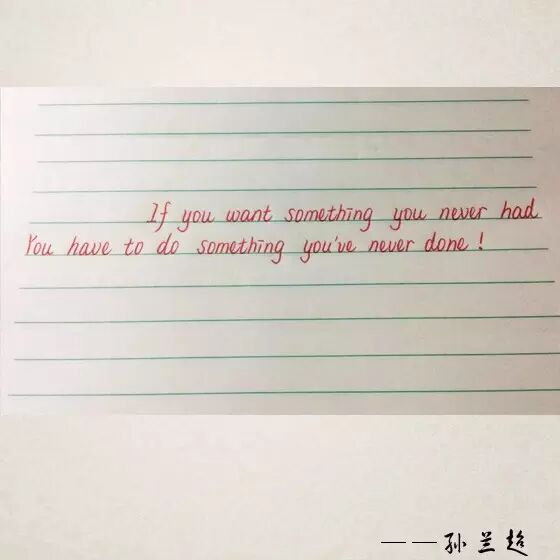 If you want something you never had
You have to do something you've never done!
——孙兰超